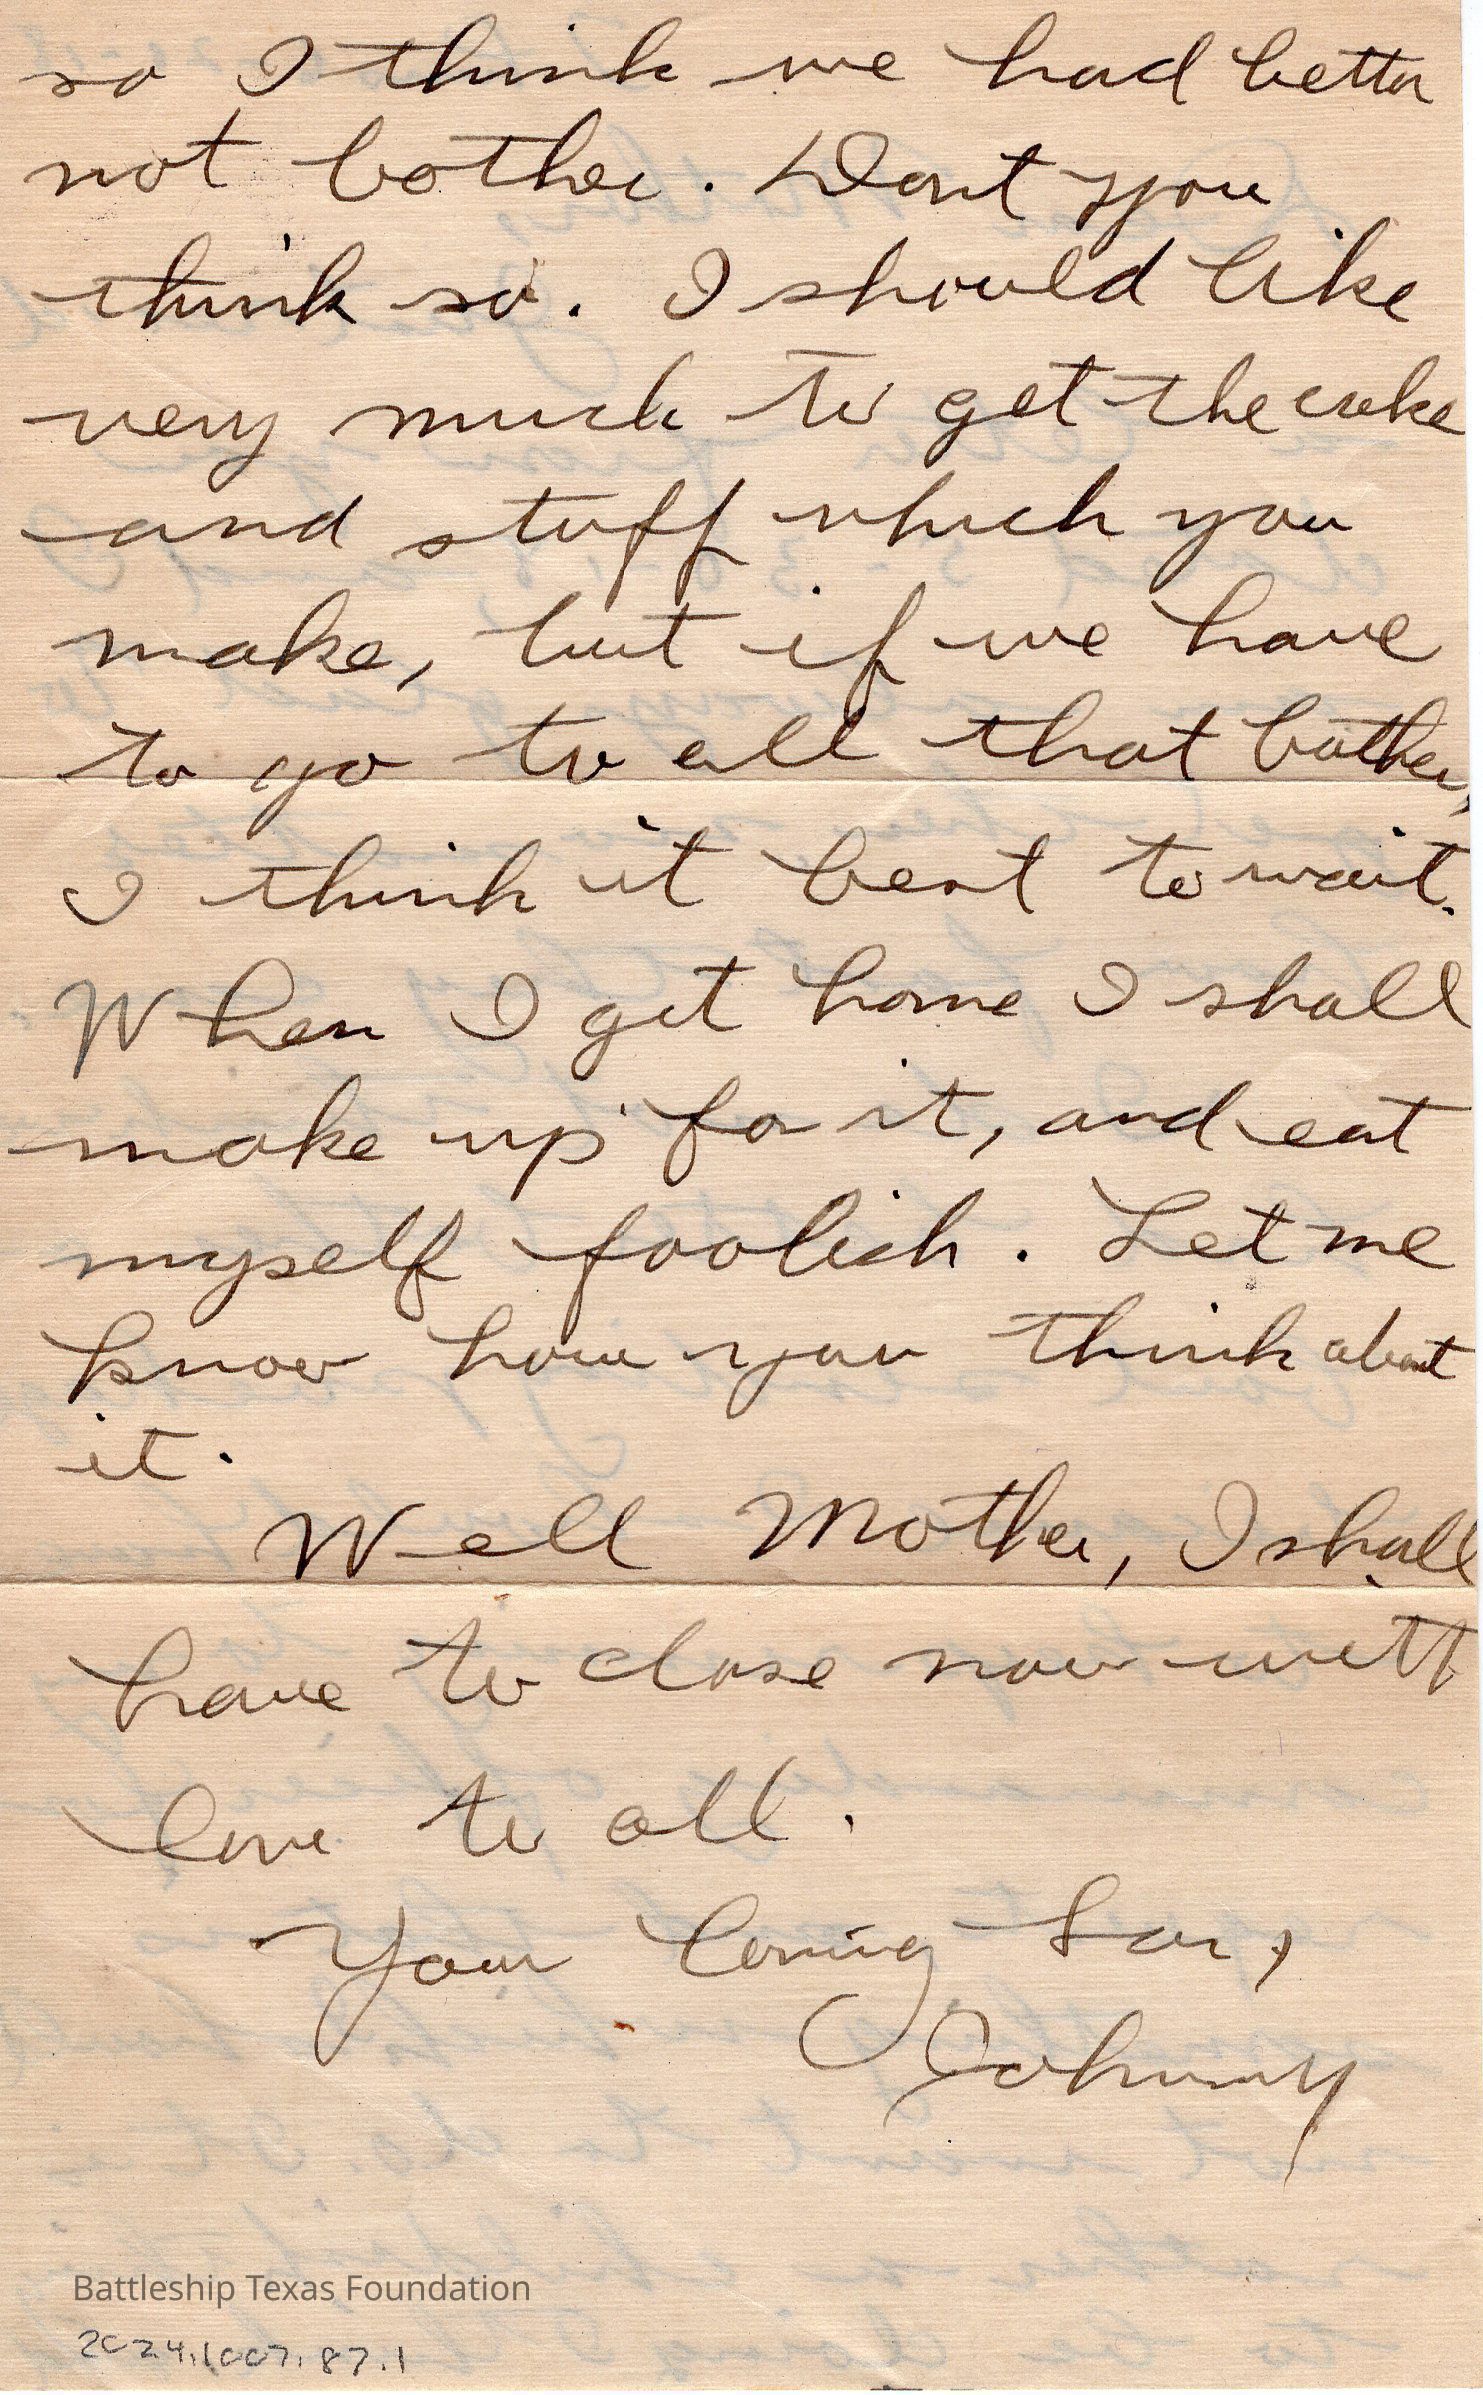 so I think we had better
not bother. Dont you
think so. I should like
very much to get the cake
and stuff which you
make, but if we have
to go to all that bother,
I think it best to wait.
When I get home I shall
make up for it, and eat
myself foolish. Let me
know how you think about
it.
Well Mother, I shall
have to close now with
love to all.
Your loving Son,
Johnny
Battleship Texas Foundation
2024.1007.87.1